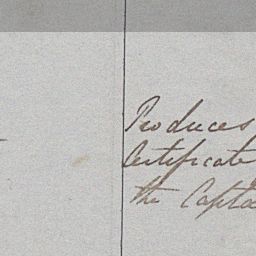 Produces
Certificate
the Capta